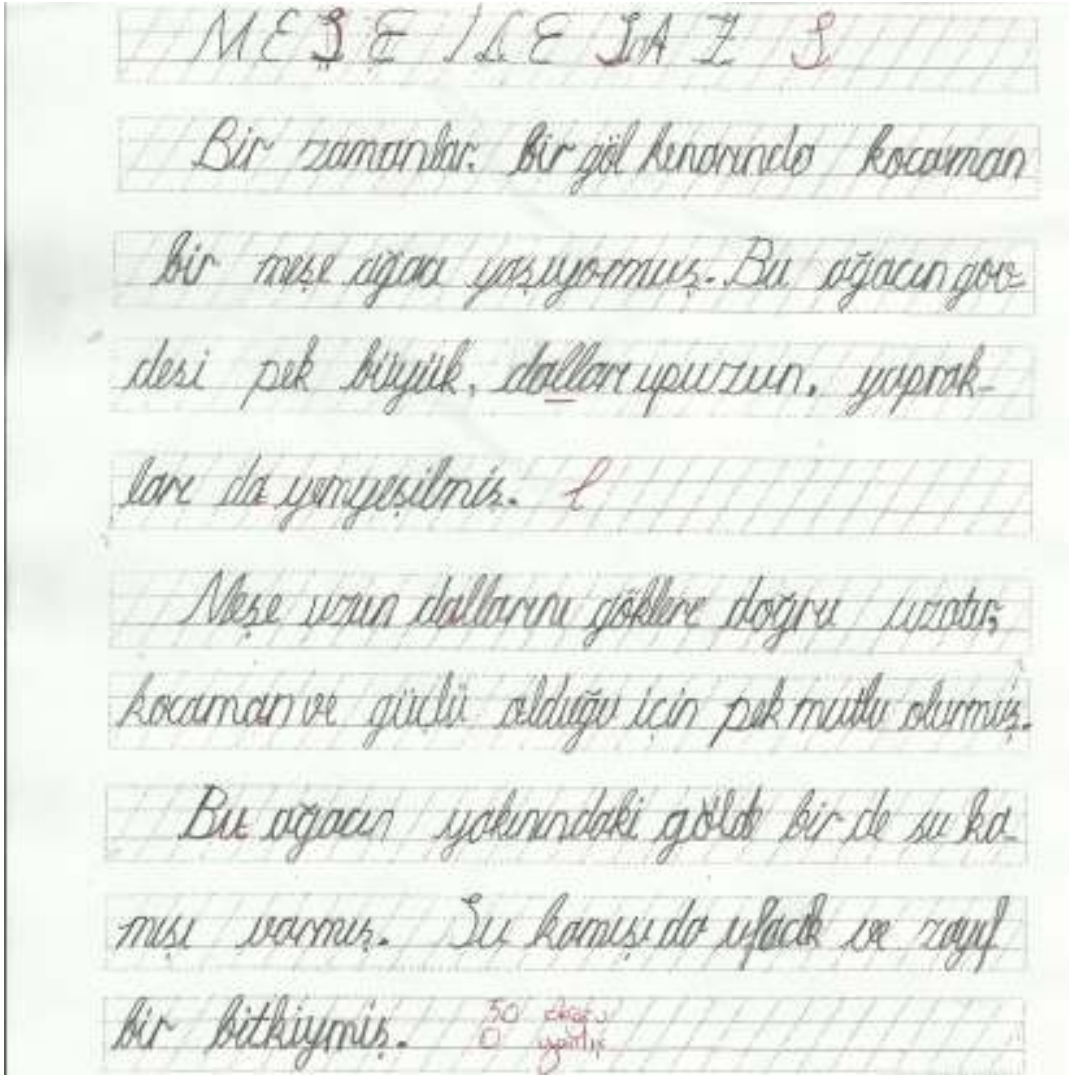 MEŞE İLE SAZ S
Bir zamanlar, bir göl kenarında kocaman
bir meşe ağacı yaşıyormuş. Bu ağacın göv-
desi pek büyük, dalları upuzun, yaprak-
ları da yemyeşilmiş. l
Meşe uzun dallarını göklere doğru uzatır,
kocaman ve güçlü olduğu için pek mutlu olurmuş.
Bu ağacın yakınındaki gölde bir de su ka-
mışı varmış. Su kamışı da ufacık ve zayıf
bir bitkiymiş. 50 doğru
0 yanlış